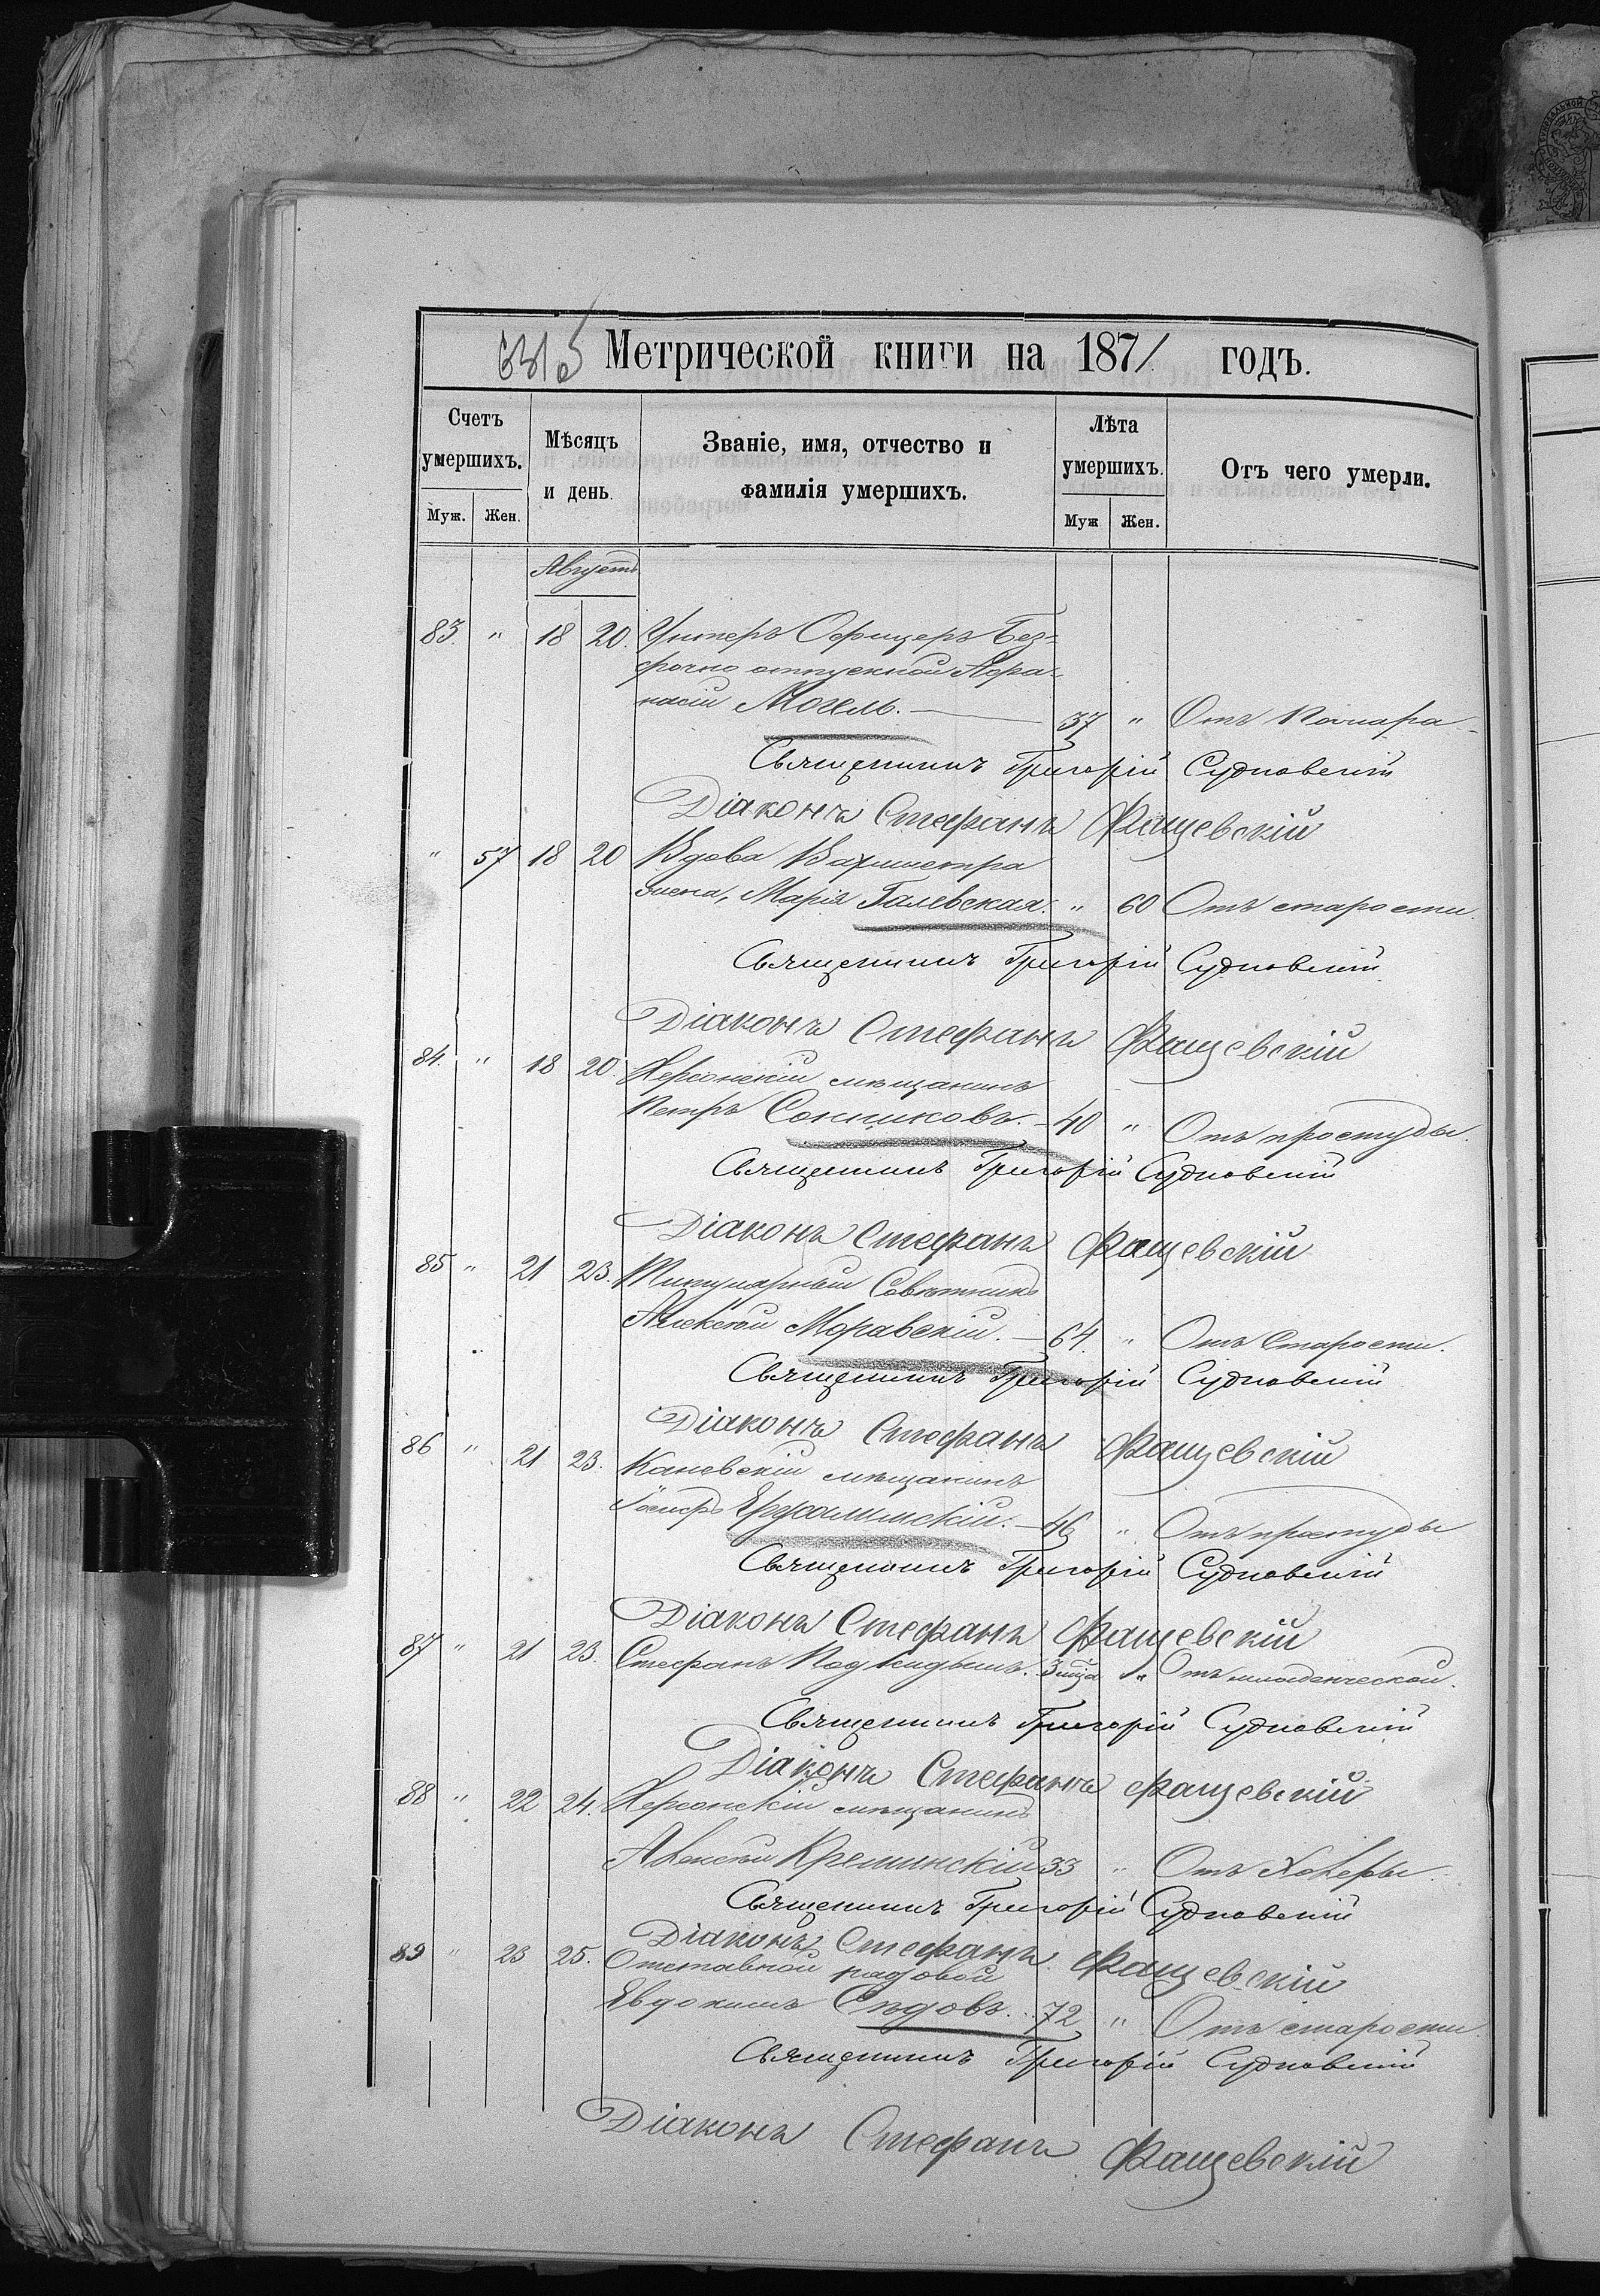 Метрической книги на 1871 годъ.
Счетъ умершихъ.
Мѣсяцъ и день.
Званіе, имя, отчество и фамилія умершихъ.
Лѣта умершихъ.
Отъ чего умерли.
Муж. Жен.
Муж Жен.
Августъ
83. " 18 20. Унтеръ Офицеръ Без-
срочно отпускной Афа-
насій Могель. — 37 " Отъ
Священникъ Григорій Судковскій
Діаконъ Стефанъ Фащевскій
" 57 18 20 Вдова Вахмистра
жена, Марія Галевская. " 60 Отъ старости.
Священникъ Григорій Судковскій
Діаконъ Стефанъ Фащевскій
84. " 18 20. Херсонскій мѣщанинъ
Петръ Сошниковъ. — 40 " Отъ простуды.
Священникъ Григорій Судковскій
Діаконъ Стефанъ Фащевскій
85 " 21 23. Титулярный Совѣтникъ
Алексѣй Моравскій. — 64. " Отъ Старости.
Священникъ Григорій Судковскій
Діаконъ Стефанъ Фащевскій
86 " 21 23. Каневскій мѣщанинъ
— 46 " Отъ простуды
Священникъ Григорій Судковскій
Діаконъ Стефанъ Фащевскій
87 " 21 23. Стефанъ Подкидышъ. " Отъ младенческой.
Священникъ Григорій Судковскій
Діаконъ Стефанъ Фащевскій
88 " 22 24. Херсонскій мѣщанинъ
Алексѣй Креминскій 33 " Отъ Холеры.
Священникъ Григорій Судковскій
Діаконъ Стефанъ Фащевскій
89 " 23 25. Отставной рядовой
Евдокимъ Сѣдовъ. 72 " Отъ старости.
Священникъ Григорій Судковскій
Діаконъ Стефанъ Фащевскій